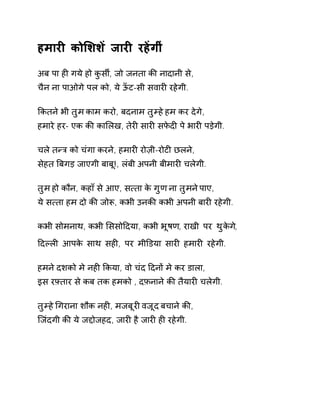 हमारी कोशिशें जारी रहेंगीं
अब पा ही गये हो कुर्सी, जो जनता की नादानी से,
चैन ना पाओगे पल को, ये ऊँट-सी सवारी रहेगी.
कितने भी तुम काम करो, बदनाम तुम्हे हम कर देगे,
हमारे हर- एक की कालिख, तेरी सारी सफेदी पे भारी पड़ेगी.
चले तन्त्र को चंगा करने, हमारी रोज़ी-रोटी छलने,
सेहत बिगड़ जाएगी बाबू!, लंबी अपनी बीमारी चलेगी.
तुम हो कौन, कहाँ से आए, सत्ता के गुण ना तुमने पाए,
ये सत्ता हम दो की जोरू, कभी उनकी कभी अपनी बारी रहेगी.
कभी सोमनाथ, कभी सिसोदिया, कभी भूषण, राखी पर थुकेगे,
दिल्ली आपके साथ सही, पर मीडिया सारी हमारी रहेगी.
हमने दशको मे नही किया, वो चंद दिनों मे कर डाला,
इस रफ़्तार से कब तक हमको , दफ़नाने की तैयारी चलेगी.
तुम्हे गिराना शौक नही, मजबूरी वजूद बचाने की,
जिंदगी की ये जद्दोजहद, जारी है जारी ही रहेगी.